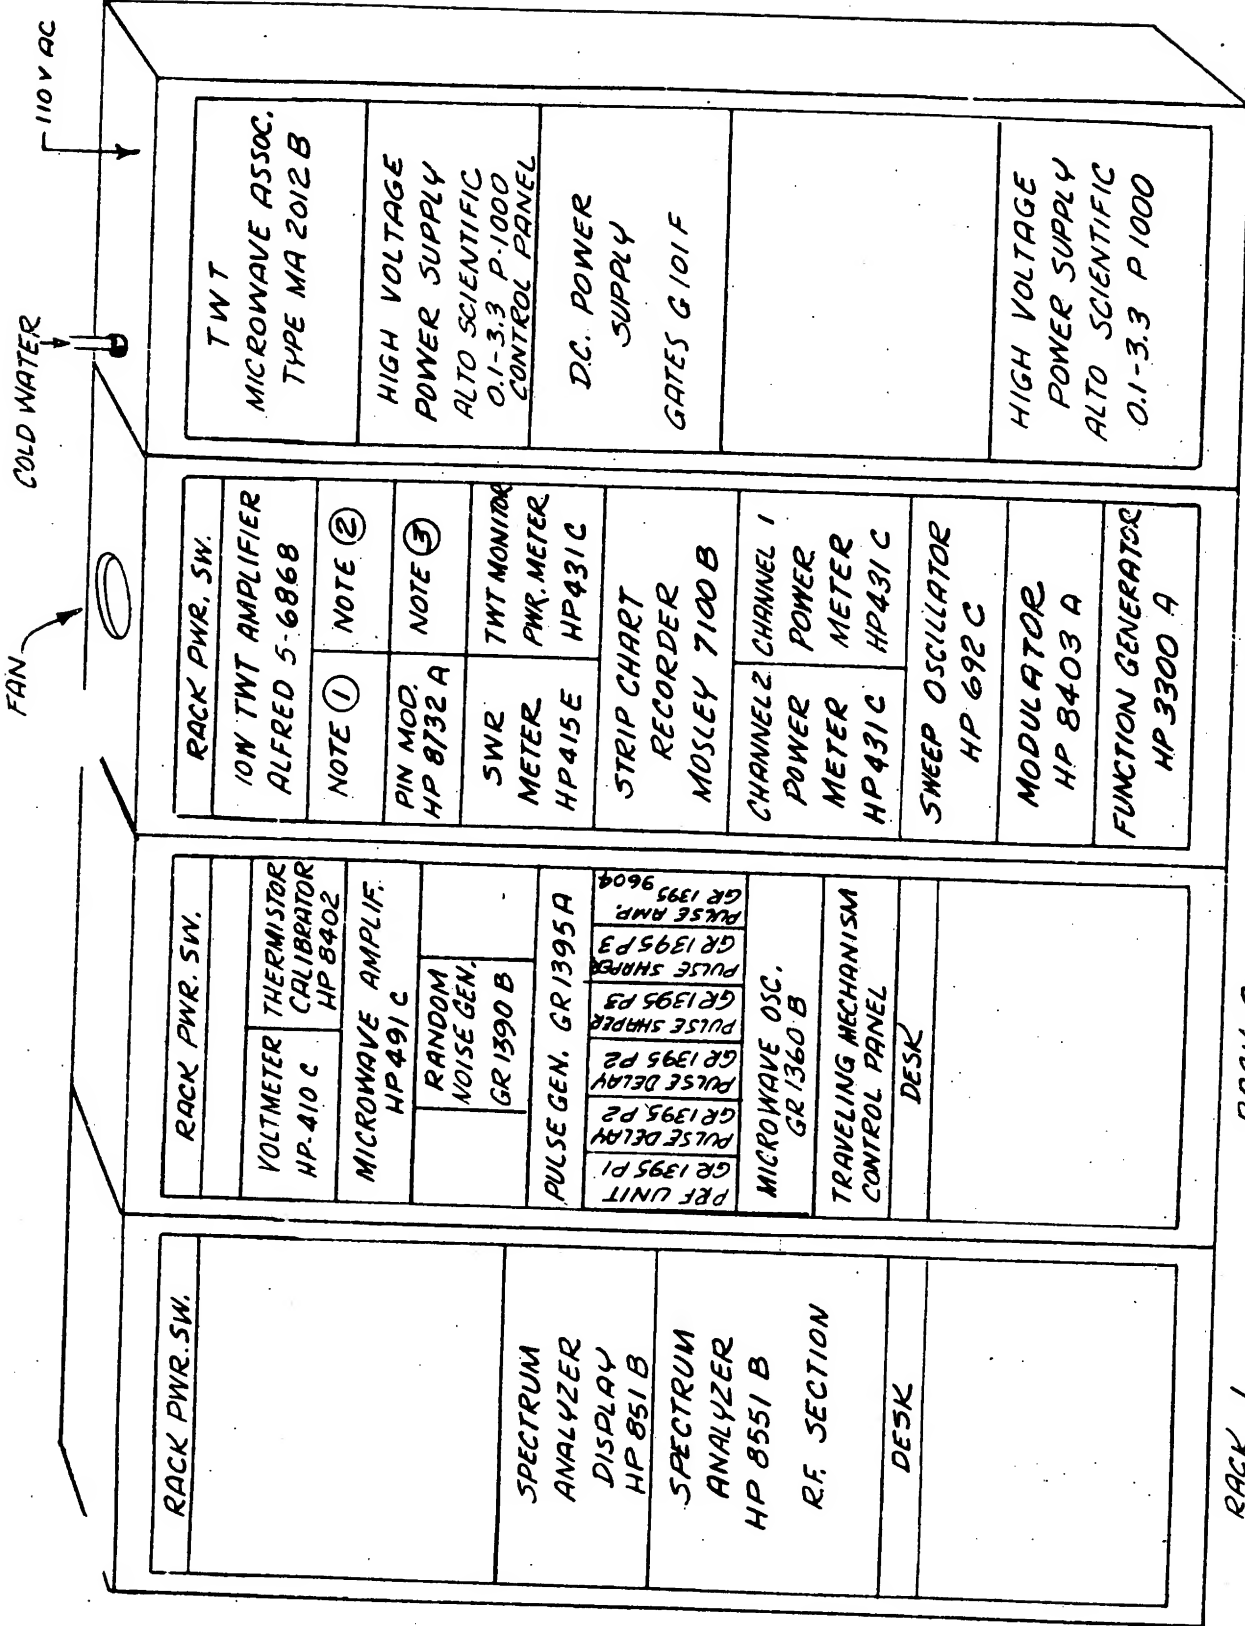 FAN
COLD WATER
110 V AC
RACK PWR. SW.
SPECTRUM
ANALYZER
DISPLAY
HP 851 B
SPECTRUM
ANALYZER
HP 8551 B
R.F. SECTION
DESK
RACK 1
RACK PWR. SW.
VOLTMETER
HP-410 C
THERMISTOR
CALIBRATOR
HP 8402
MICROWAVE AMPLIF.
HP 491 C
RANDOM
NOISE GEN.
GR 1390 B
PULSE GEN. GR1395A
PRF UNIT
GR 1395 P1
PULSE DELAY
GR 1395, P2
PULSE DELAY
GR 1395 P2
PULSE SHAPER
GR 1395 P3
PULSE SHAPER
GR 1395 P3
PULSE AMP.
GR 1395
9604
MICROWAVE OSC.
GR 1360 B
TRAVELING MECHANISM
CONTROL PANEL
DESK
RACK PWR. SW.
10W TWT AMPLIFIER
ALFRED 5-6868
NOTE 1
NOTE 2
PIN MOD.
HP 8732 A
NOTE 3
SWR
METER
HP415E
TWT MONITOR
PWR. METER
HP431C
STRIP CHART
RECORDER
MOSLEY 7100 B
CHANNEL 2
POWER
METER
HP431 C
CHANNEL 1
POWER
METER
HP431 C
SWEEP OSCILLATOR
HP 692 C
MODULATOR
HP 8403 A
FUNCTION GENERATOR
HP 3300 A
TWT
MICROWAVE ASSOC.
TYPE MA 2012 B
HIGH VOLTAGE
POWER SUPPLY
ALTO SCIENTIFIC
0.1-3.3 P-1000
CONTROL PANEL
D.C. POWER
SUPPLY
GATES G101F
HIGH VOLTAGE
POWER SUPPLY
ALTO SCIENTIFIC
0.1-3.3 P 1000